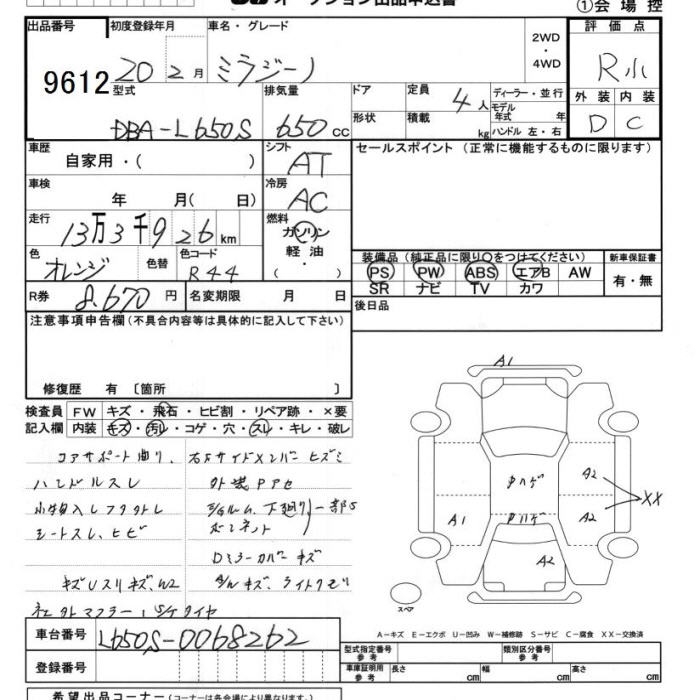 オークション出品申込書
①会場控
出品番号 初度登録年月 車名・グレード 2WD ・4WD 評価点
9612 20 2月 ミラジーノ R小
型式 排気量 ドア 定員 4人 ディーラー・並行 外装 内装
DBA-L650S 650cc 形状 積載 kg モデル年式 年 ハンドル 左・右 D C
車歴 自家用・( ) シフト AT セールスポイント (正常に機能するものに限ります)
車検 年 月( 日) 冷房 AC
走行 13万3千926km 燃料 ガソリン
軽油・( )
色 オレンジ 色替 色コード R44 装備品(純正品に限り○をつけてください) 新車保証書
PS PW ABS エアB AW 有・無
SR ナビ TV カワ
R券 8.670円 名変期限 月 日 後日品
注意事項申告欄(不具合内容等は具体的に記入して下さい)
修復歴 有 〔箇所 〕
検査員 FW キズ・飛石・ヒビ割・リペア跡・×要
記入欄 内装 キズ・汚レ・コゲ・穴・スレ・キレ・破レ
コアサポート曲り、右Fサイドメンバーヒズミ
ハンドルスレ 外装Pアセ
小物入レフタトレ
シートスレ、ヒビ ボンネット
Dミラーカバーキズ
キズUスリキズ、W2
社外マフラー
A1
A2
A2
XX
A1
A2
スペア
A-キズ E-エクボ U-凹み W-補修跡 S-サビ C-腐食 XX-交換済
車台番号 L650S-0068262
型式指定番号 類別区分番号
登録番号 車庫証明用参考 長さ cm 幅 cm 高さ cm
希望出品コーナー (コーナーは各会場により異なります。)